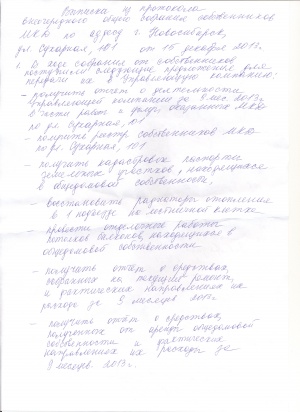 Выписка из протокола
внеочередного общего собрания собственников
МКД по адресу г. Новосибирск,
ул. Сухарная, 101 от 15 декабря 2013г.
1. В ходе собрания от собственников
поступили следующие предложения для
передачи их в Управляющую компанию:
- получить отчет о деятельности
Управляющей компании за 9 мес. 2013г.
в части работ и услуг, оказанных МКД
по ул. Сухарная, 101
- получить реестр собственников МКД
по ул. Сухарная, 101
- получить кадастровые паспорта
земельных участков, находящихся
в общедомовой собственности.
- восстановить радиаторы отопления
в 1 подъезде на лестничной клетке
- провести отделочные работы
потолков балконов, находящихся в
общедомовой собственности
- получить отчет о средствах,
собранных на текущий ремонт,
и фактических направлениях их
расхода за 9 месяцев 2013г.
- получить отчет о средствах,
полученных от аренды общедомовой
собственности и фактических
направлениях их расхода за
9 месяцев 2013г.